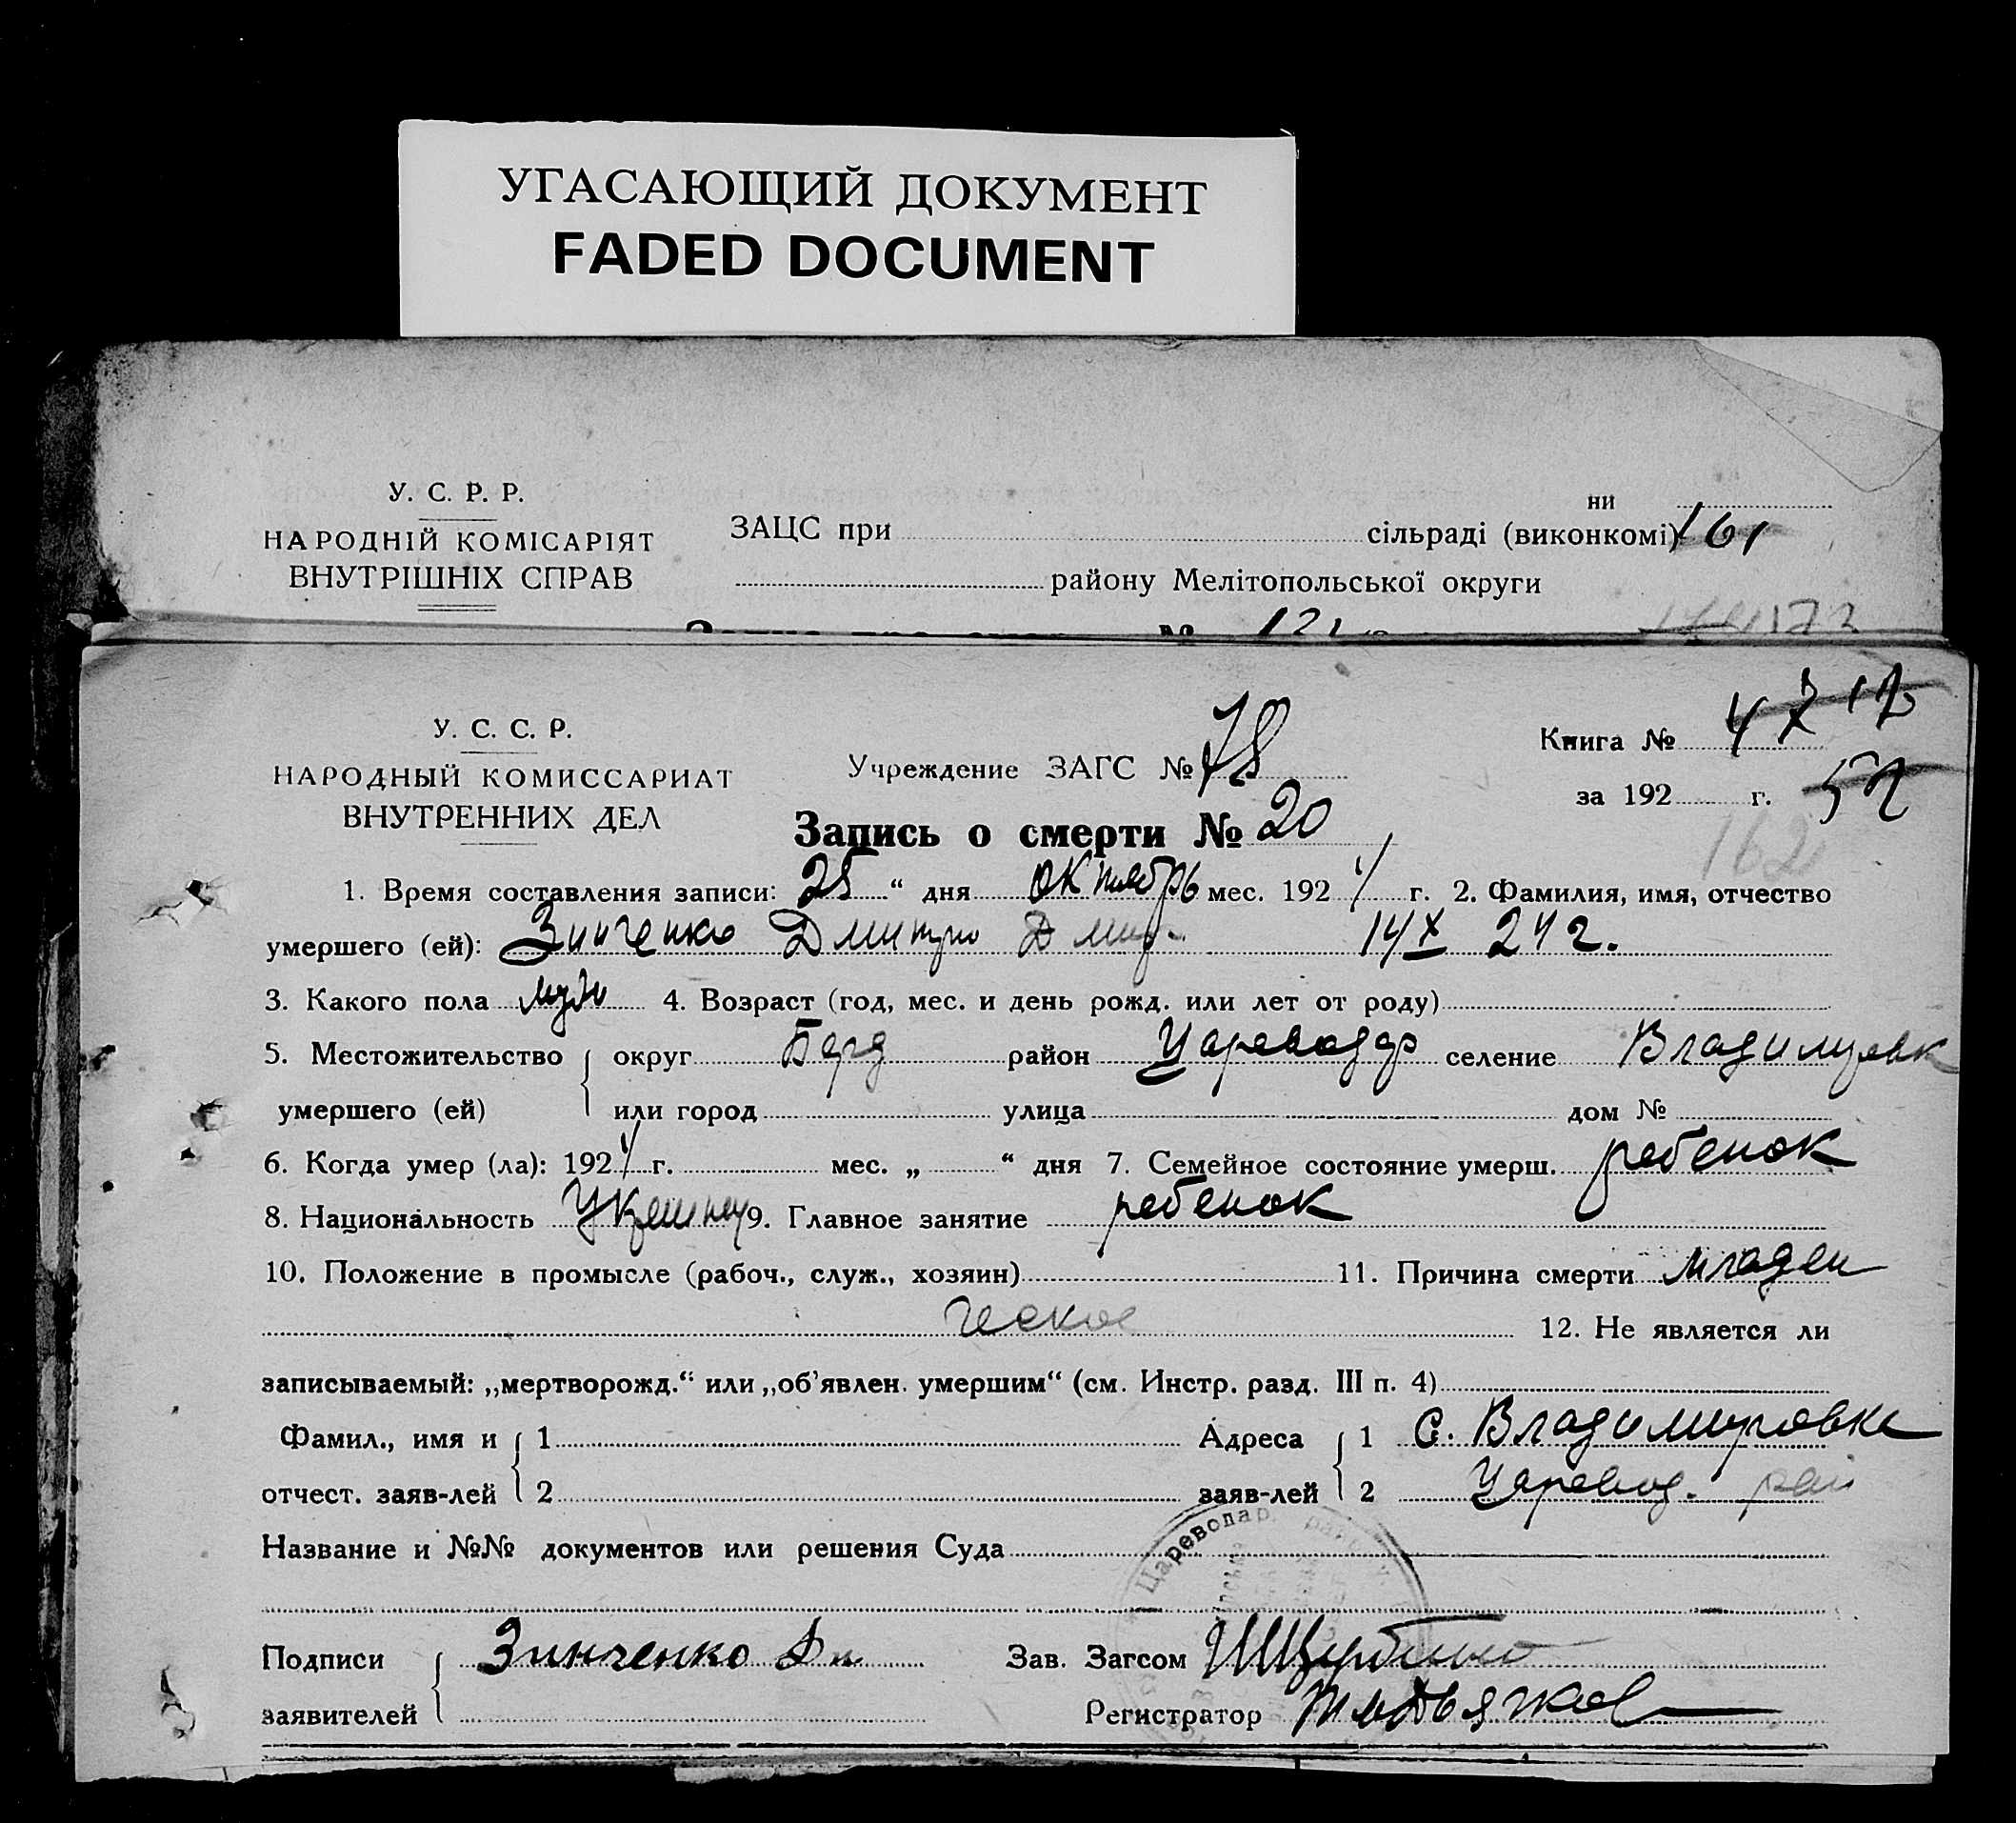 УГАСАЮЩИЙ ДОКУМЕНТ
FADED DOCUMENT
У. С. Р. Р.
НАРОДНІЙ КОМІСАРІЯТ
ВНУТРІШНІХ СПРАВ
ни
ЗАЦС при сільраді (виконкомі) 161
району Мелітопольської округи
У. С. С. Р.
НАРОДНЫЙ КОМИССАРИАТ
ВНУТРЕННИХ ДЕЛ
Учреждение ЗАГС № 78
Книга №
за 192 г. 52
162
Запись о смерти № 20
1. Время составления записи: 25 “ дня октябрь мес. 1924 г. 2. Фамилия, имя, отчество
умершего (ей): Зинченко Дмитрий Дмитр. 14 X 24 г.
3. Какого пола муж 4. Возраст (год, мес. и день рожд. или лет от роду)
5. Местожительство округ Берд район Цареводар селение Владимровк
умершего (ей) или город улица дом №
6. Когда умер (ла): 1924 г. мес. „ “ дня 7. Семейное состояние умерш. ребенок
8. Национальность 9. Главное занятие ребенок
10. Положение в промысле (рабоч., служ., хозяин) 11. Причина смерти младен
ческое 12. Не является ли
записываемый: „мертворожд.“ или „об’явлен. умершим“ (см. Инстр. разд. III п. 4)
Фамил., имя и 1 Адреса 1 С. Владимировка
отчест. заяв-лей 2 заяв-лей 2 Царевод. рай
Название и №№ документов или решения Суда
Цареводар.
Подписи Зинченко Дм Зав. Загсом
заявителей Регистратор